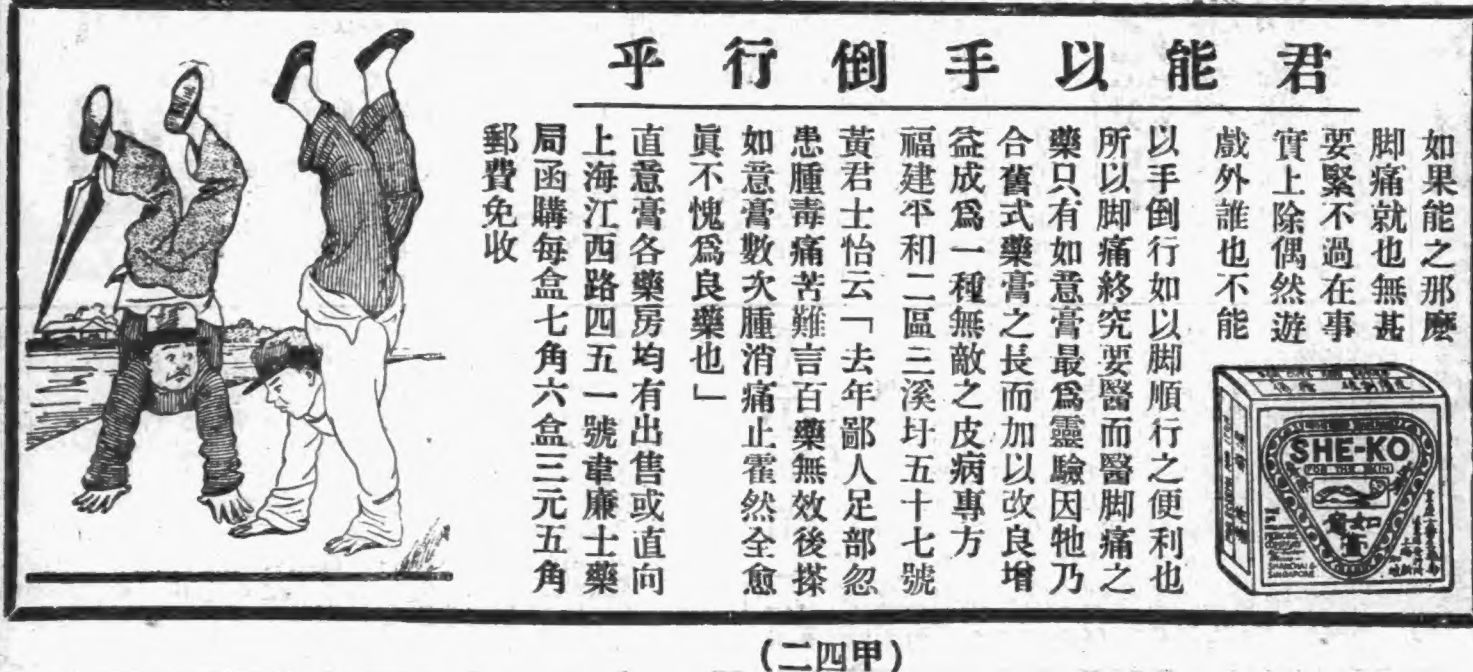 君能以手倒行乎
如果能之那麽
脚痛就也無甚
要緊不過在事
實上除偶然遊
戲外誰也不能
以手倒行如以脚順行之便利也
所以脚痛終究要醫而醫脚痛之
藥只有如意膏最爲靈驗因牠乃
合舊式藥膏之長而加以改良增
益成爲一種無敵之皮病專方
福建平和二區三溪圩五十七號
黃君士怡云「去年鄙人足部忽
患腫毒痛苦難言百藥無效後搽
如意膏數次腫消痛止霍然全愈
眞不愧爲良藥也」
直意膏各藥房均有出售或直向
上海江西路四五一號韋廉士藥
局函購每盒七角六盒三元五角
郵費免收
SHE-KO
FOR THE SKIN
如意膏
SHANGHAI &
SINGAPORE
(二四甲)